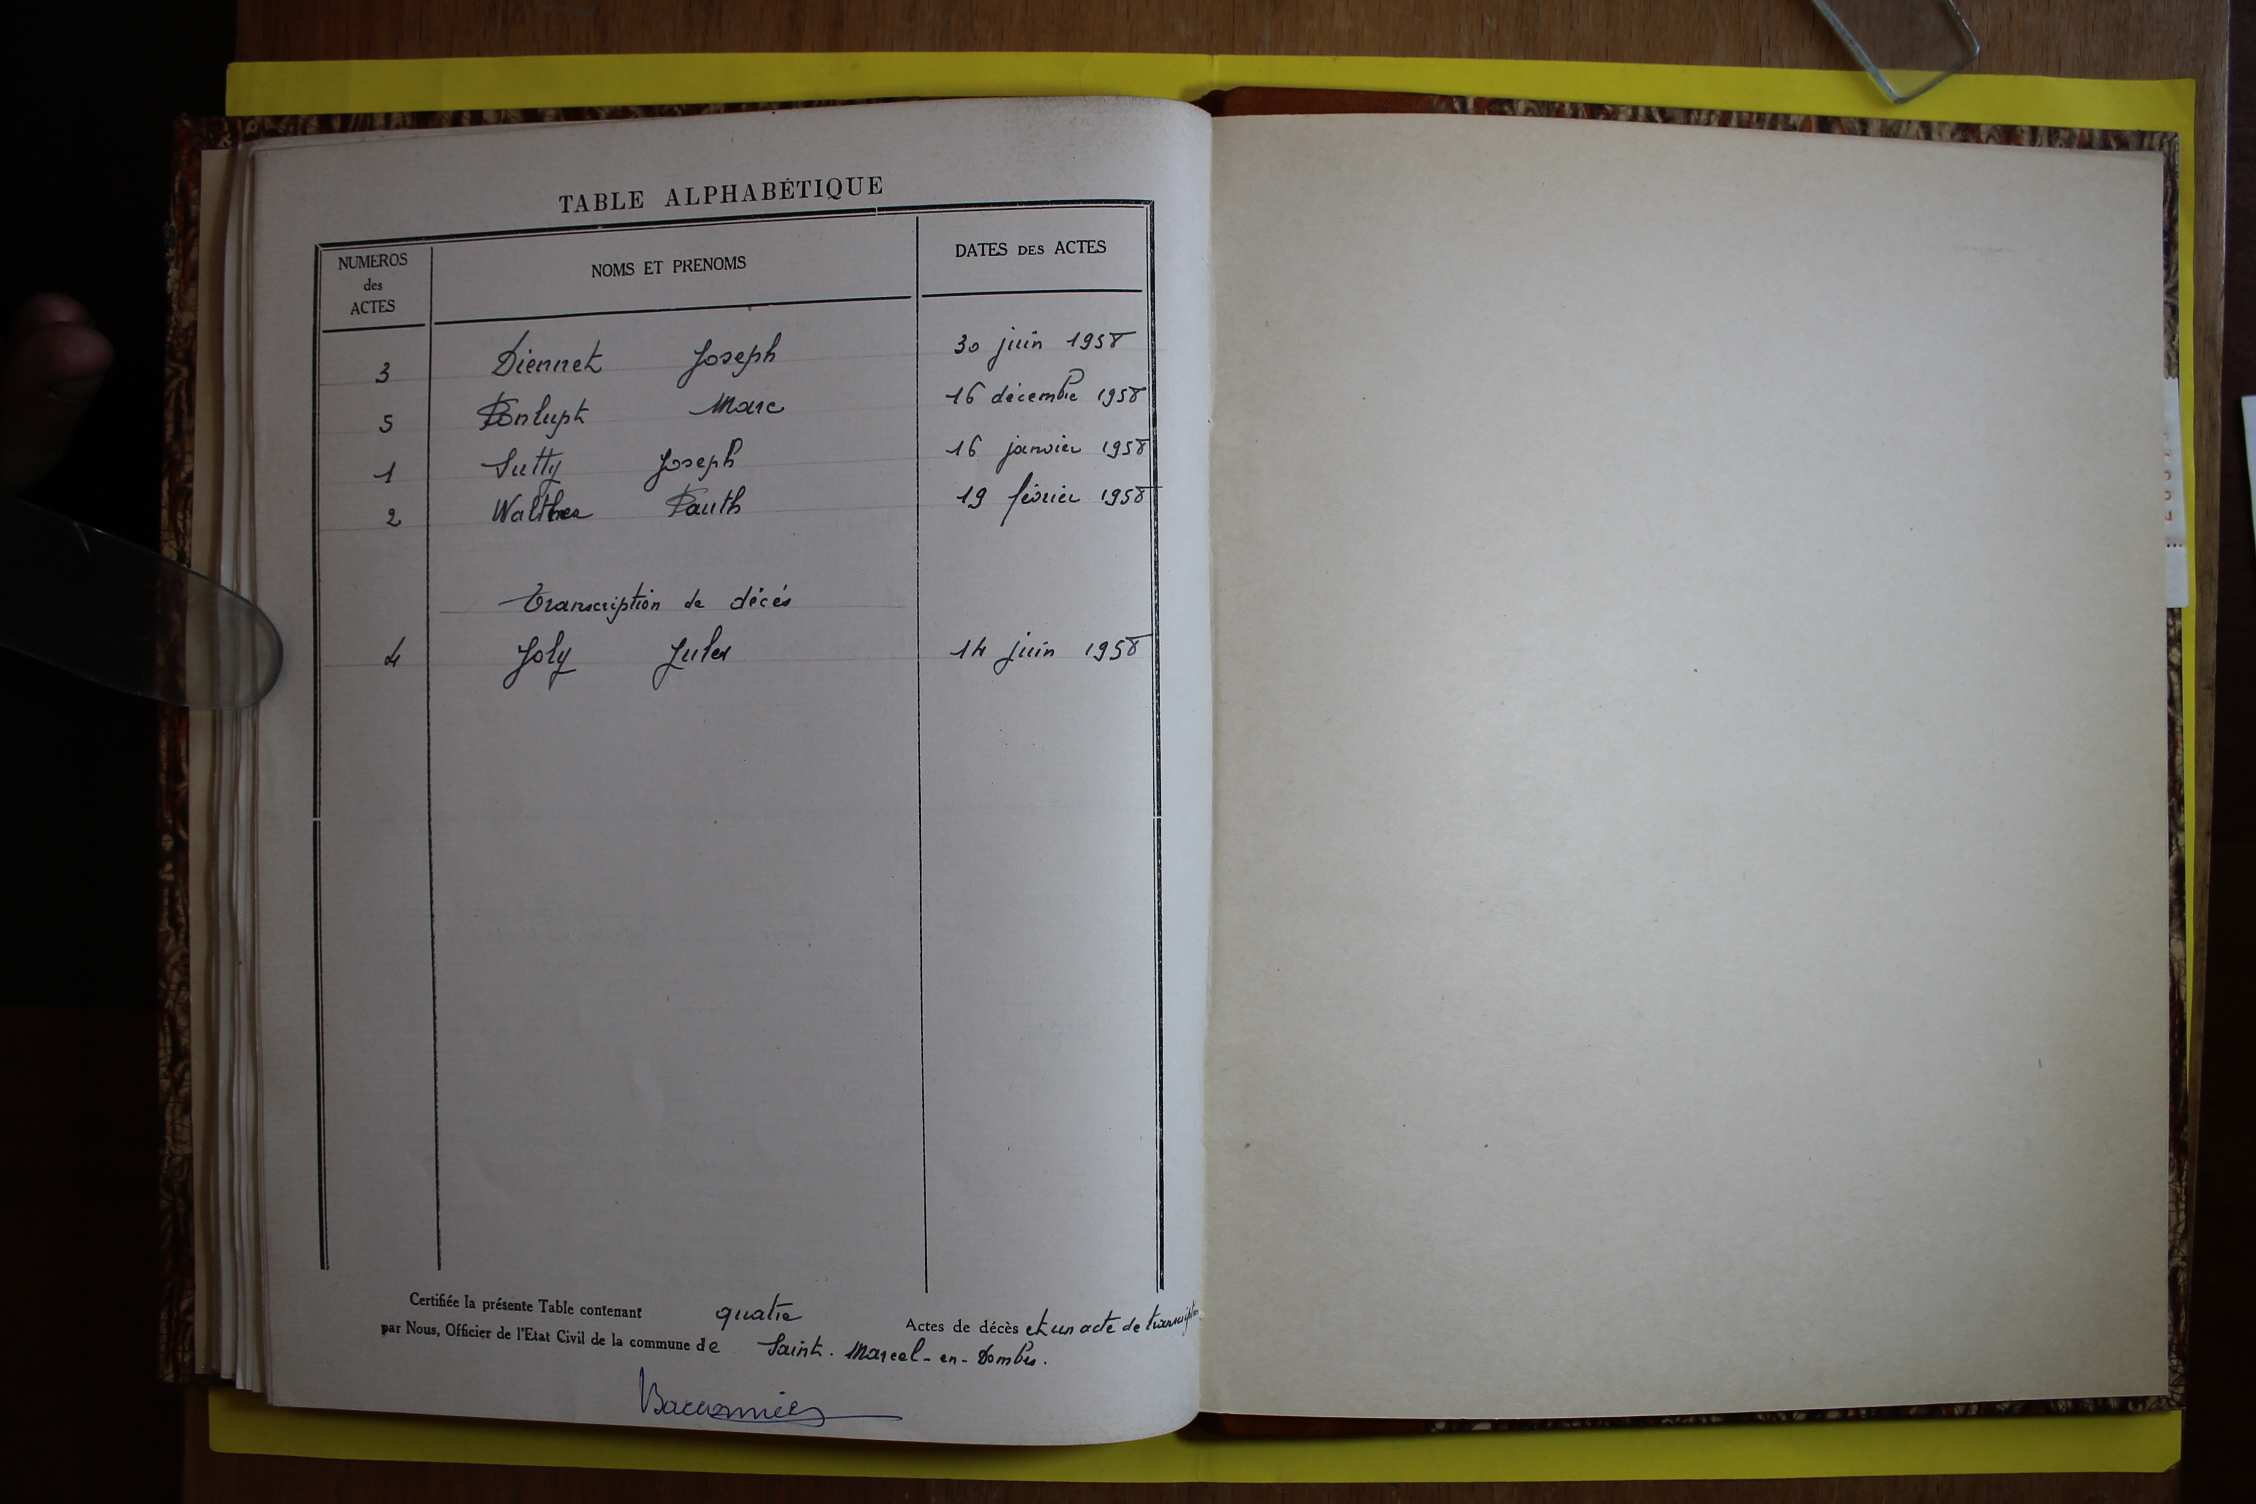 TABLE ALPHABÉTIQUE
NUMEROS des ACTES NOMS ET PRENOMS DATES DES ACTES
3 Diennet Joseph 30 juin 1958
5 Ponlupt Marc 16 décembre 1958
1 Sutty Joseph 16 janvier 1958
2 Walther 19 février 1958
Transcription de décès
4 Joly Jules 14 juin 1958
Certifiée la présente Table contenant quatre Actes de décès et un acte de transcription
par Nous, Officier de l'Etat Civil de la commune de Saint-Marcel-en-Dombes.